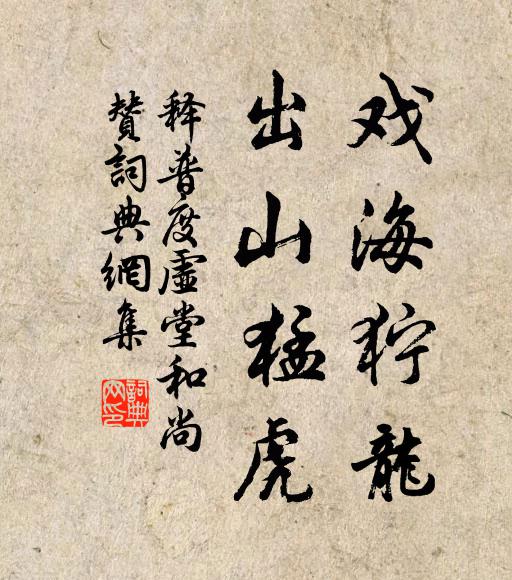 戏海狞龍
出山猛虎
释普度虚堂和尚
赞詞典網集
詞典网印